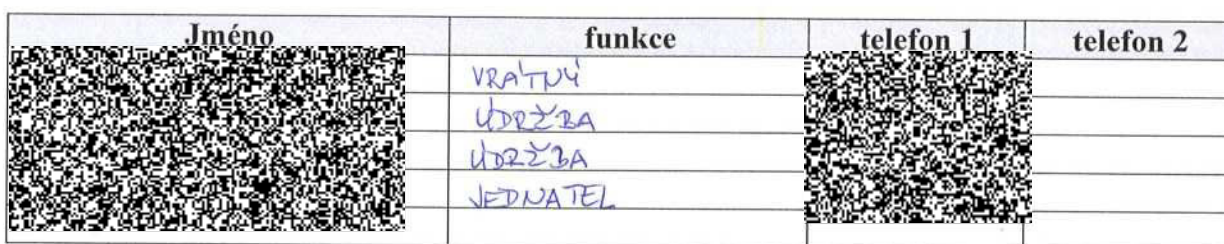 Jméno funkce telefon 1 telefon 2
VRÁTNÝ
ÚDRŽBA
ÚDRŽBA
JEDNATEL